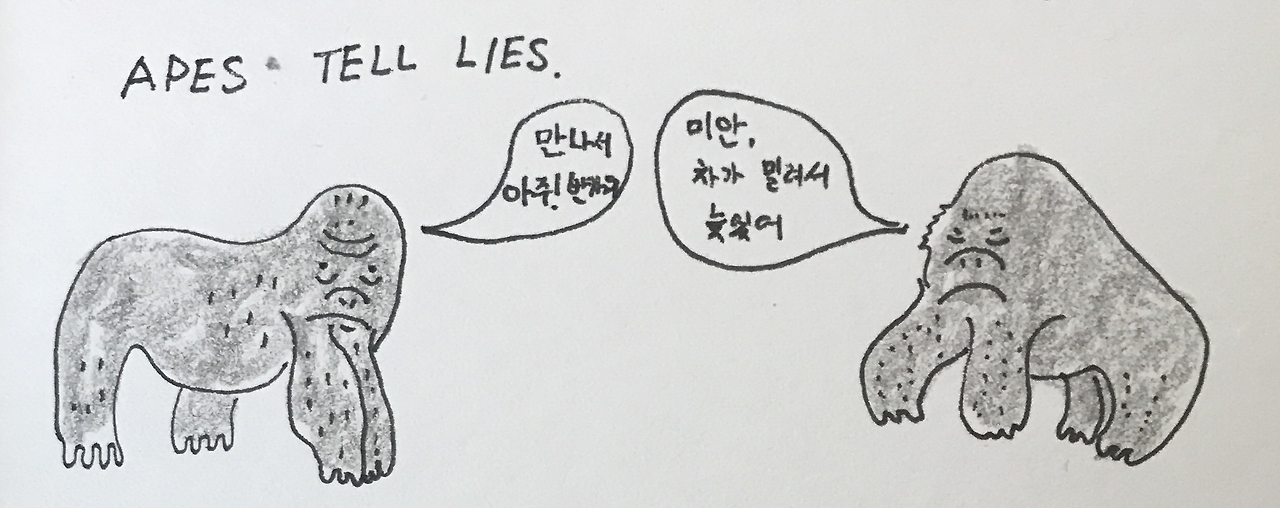 APES TELL LIES.
만나서
아주! 반가워
미안,
차가 밀려서
늦었어